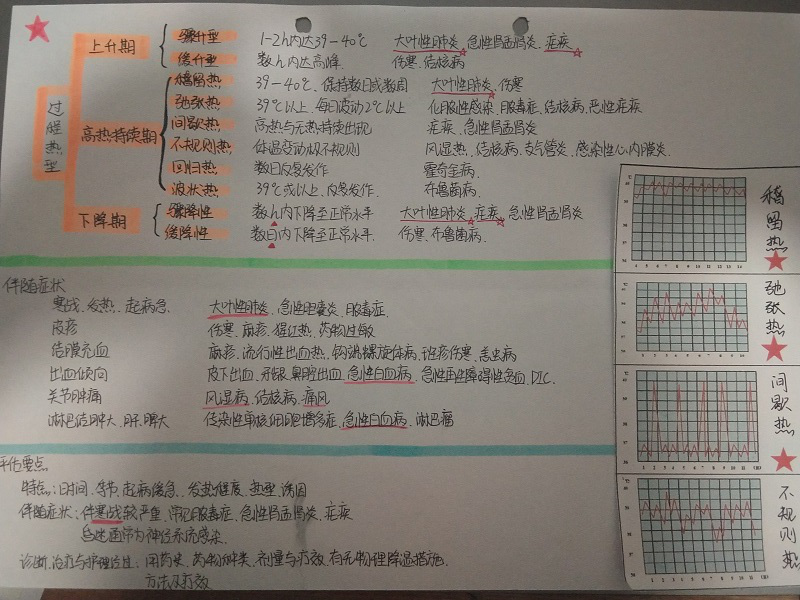 过程热型
上升期
骤升型 1-2h内达39-40℃ 大叶性肺炎、急性肾盂肾炎、疟疾
缓升型 数h内达高峰 伤寒、结核病
高热持续期
稽留热 39-40℃、保持数日或数周 大叶性肺炎、伤寒
弛张热 39℃以上、每日波动2℃以上 化脓性感染、脓毒症、结核病、恶性疟疾
间歇热 高热与无热持续出现 疟疾、急性肾盂肾炎
不规则热 体温变动极不规则 风湿热、结核病、支气管炎、感染性心内膜炎、
回归热 数日反复发作 霍奇金病、
波状热 39℃或以上、反复发作、 布鲁菌病、
下降期
骤降性 数h内下降至正常水平 大叶性肺炎、疟疾、急性肾盂肾炎
缓降性 数日内下降至正常水平、 伤寒、布鲁菌病、
伴随症状
寒战、发热、起病急、 大叶性肺炎、急性胆囊炎、脓毒症、
皮疹 伤寒、麻疹、猩红热、药物过敏
结膜充血 麻疹、流行性出血热、钩端螺旋体病、斑疹伤寒、恙虫病
出血倾向 皮下出血、牙龈、鼻腔出血、急性白血病、急性再生障碍性贫血、DIC、
关节肿痛 风湿病、结核病、痛风
淋巴结肿大、肝、脾大 传染性单核细胞增多症、急性白血病、淋巴瘤
评估要点
特点:时间、季节、起病缓急、发热程度、热型、诱因
伴随症状:伴寒战较严重、常见脓毒症、急性肾盂肾炎、疟疾
昏迷通常为神经系统感染、
诊断、治疗与护理经过:用药史、药物种类、剂量与疗效、有无物理降温措施、
方法及疗效
稽留热
弛张热
间歇热
不规则热